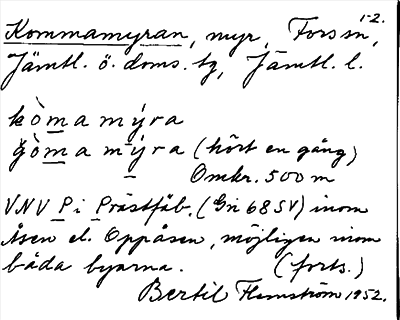 1-2.
Kommamyran, myr, Fors sn,
Jämtl. ö. doms. tg, Jämtl. l.
kòma mýra
gòma mýra (hört en gång)
Omkr. 500 m
VNV P i Prästfäb. (Gri 68 SV) inom
Åsen el. Oppåsen, möjligen inom
båda byarna. (forts.)
Bertil Flemström 1952.